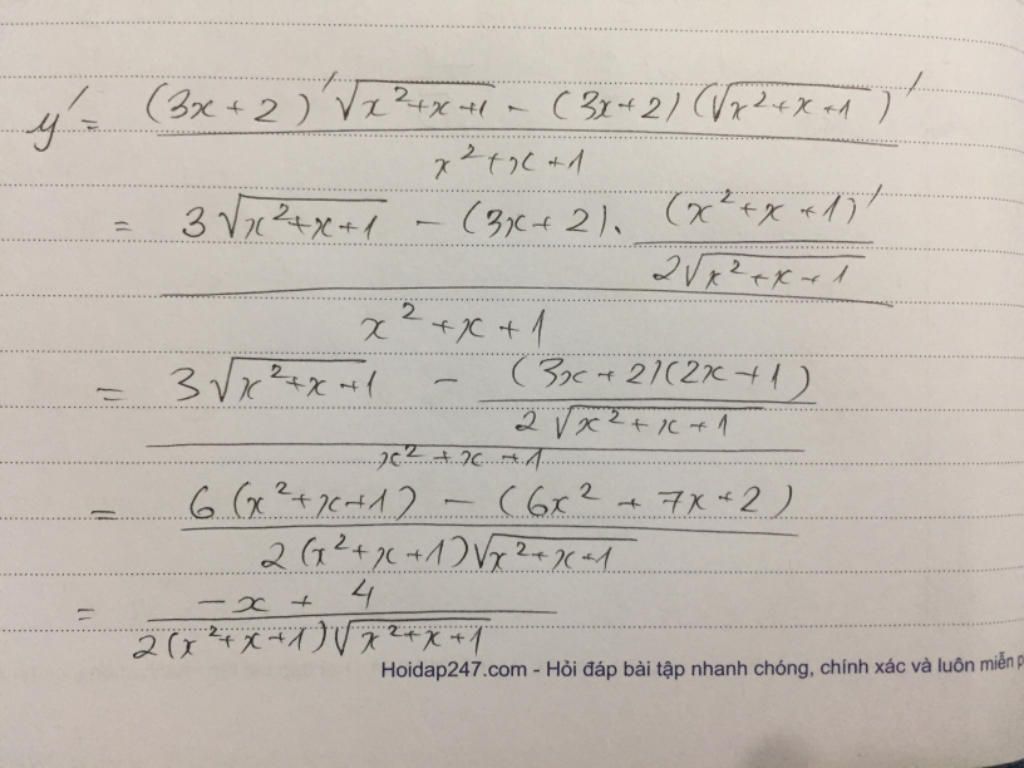 y' = ((3x+2)'√(x²+x+1) - (3x+2)(√(x²+x+1))')/(x²+x+1)
= (3√(x²+x+1) - (3x+2).(x²+x+1)'/(2√(x²+x+1)))/(x²+x+1)
= (3√(x²+x+1) - (3x+2)(2x+1)/(2√(x²+x+1)))/(x²+x+1)
= (6(x²+x+1) - (6x²+7x+2))/(2(x²+x+1)√(x²+x+1))
= (-x+4)/(2(x²+x+1)√(x²+x+1))
Hoidap247.com - Hỏi đáp bài tập nhanh chóng, chính xác và luôn miễn p